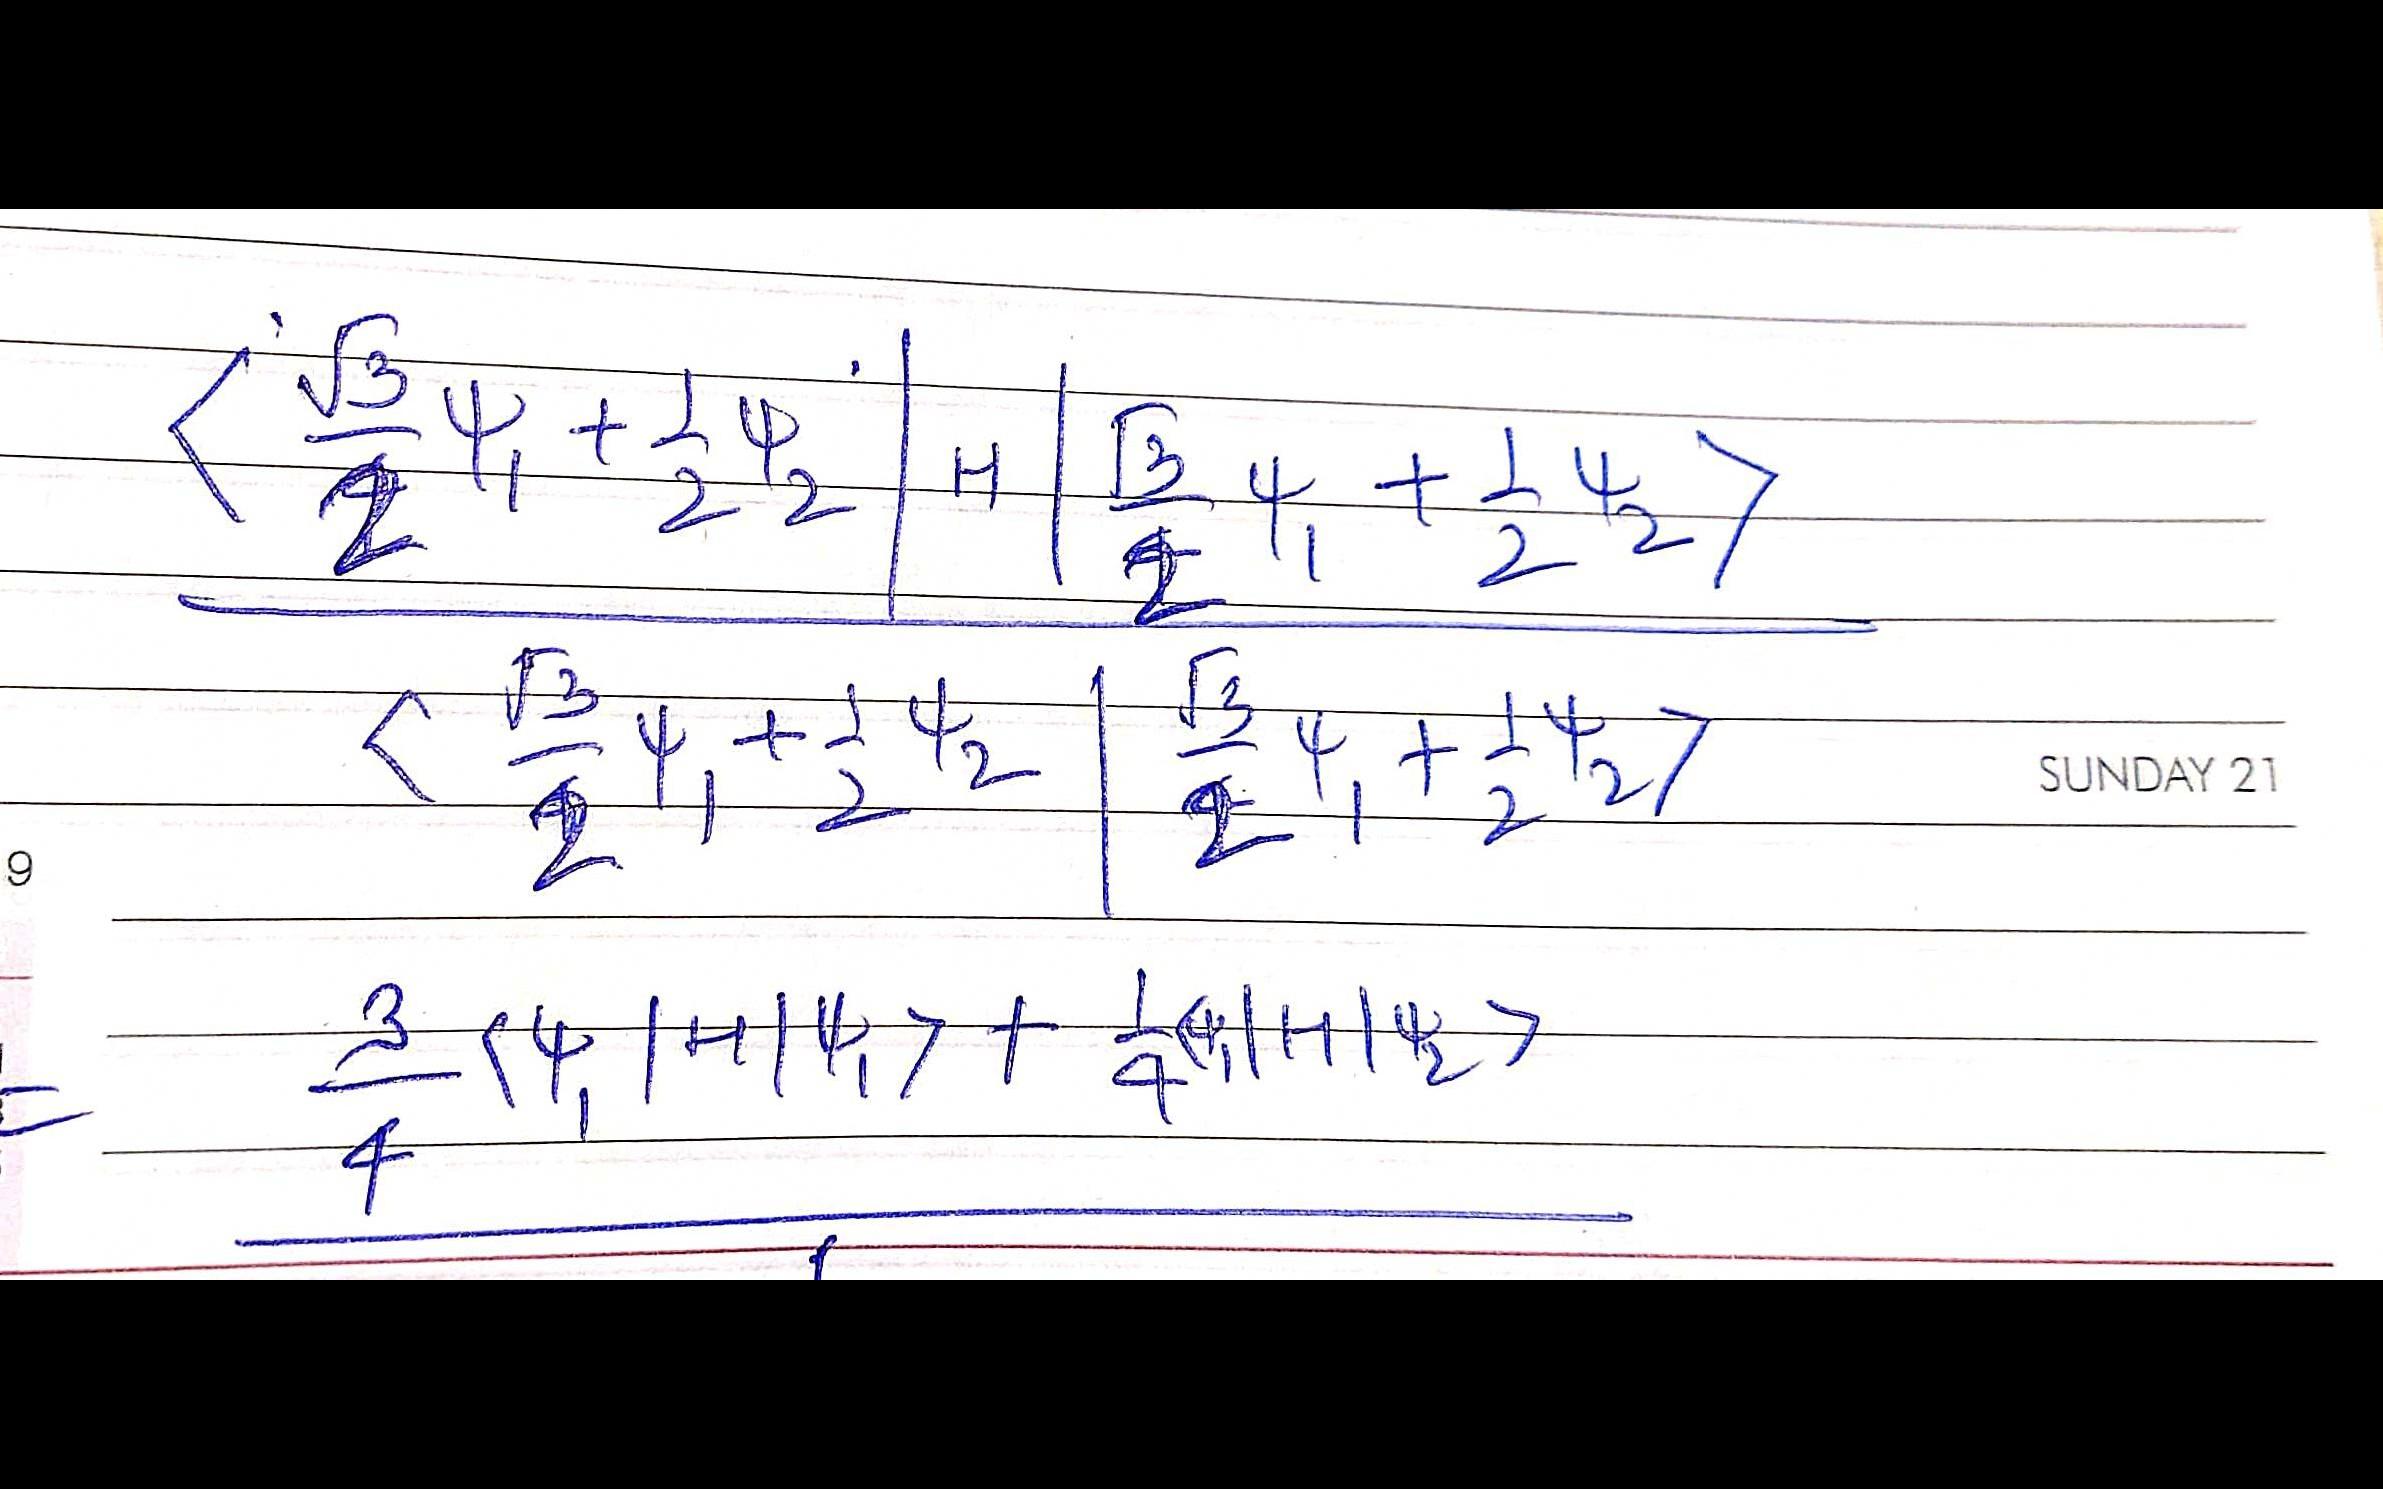 ⟨ √3/2 ψ₁ + 1/2 ψ₂ | H | √3/2 ψ₁ + 1/2 ψ₂ ⟩
⟨ √3/2 ψ₁ + 1/2 ψ₂ | √3/2 ψ₁ + 1/2 ψ₂ ⟩
SUNDAY 21
9
= 3/4 ⟨ψ₁|H|ψ₁⟩ + 1/4 ⟨ψ₁|H|ψ₂⟩